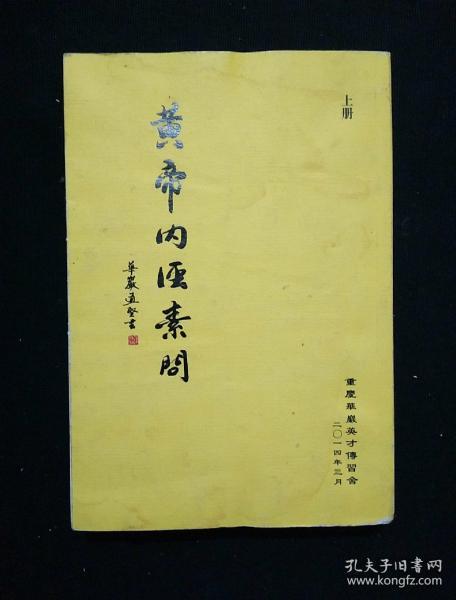 上册
黃帝内經素問
華巖道堅書
重慶華巖英才傳習舍
二〇一四年三月
孔夫子旧书网
www.kongfz.com